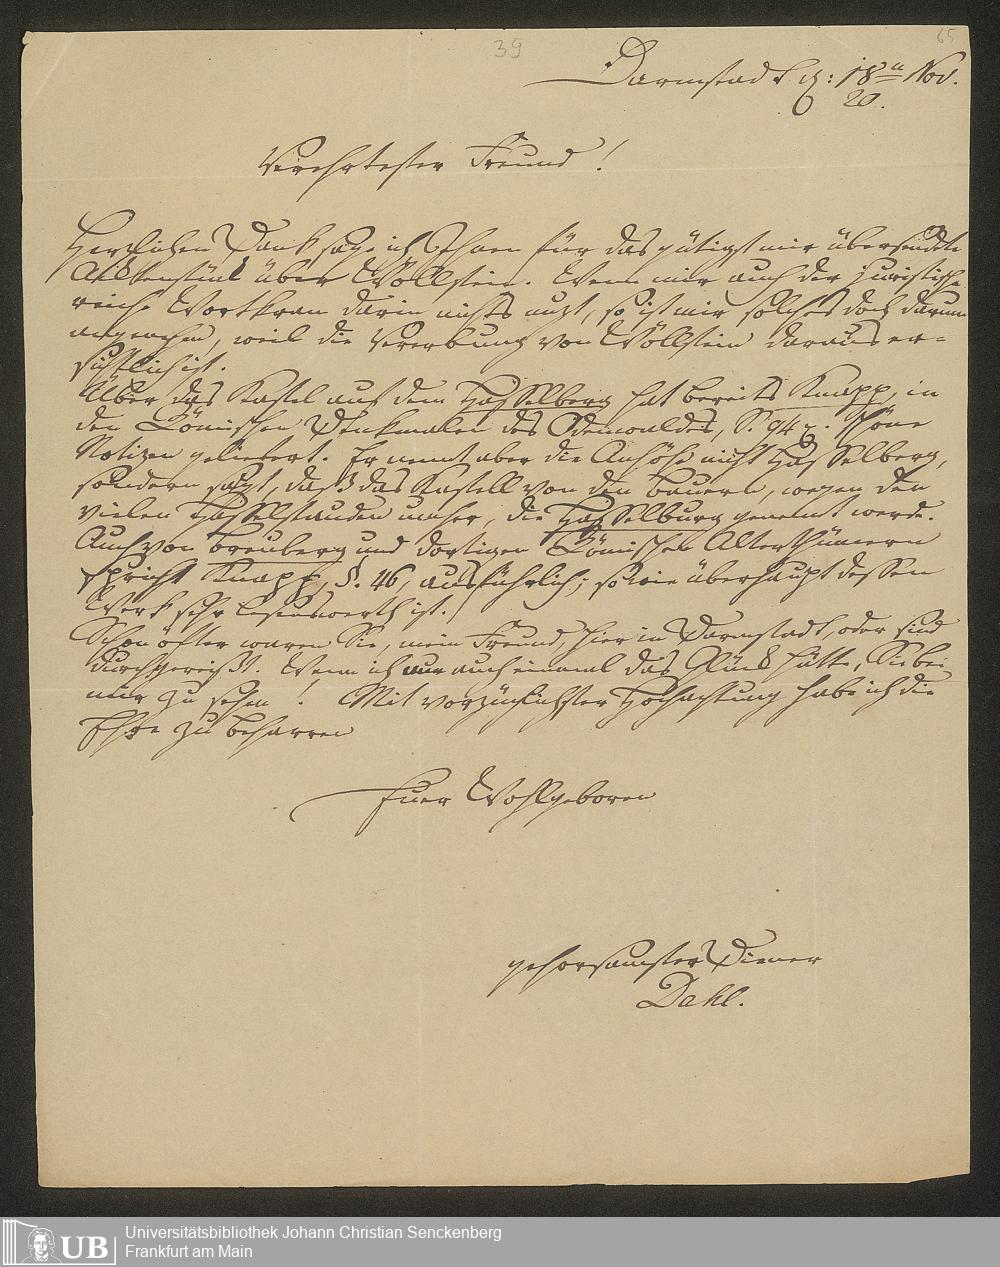 39
65
Darmstadt d: 18n Nov.
20.
Verehrtester Freund!
Herzlichen Dank sage ich Ihnen für das gütigst mir übersendete
Aktenstück über Wöllstein. Wenn mir auch der juristische
Wortkram darin nichts nuzt, so ist mir solches doch darum
angenehm, weil die Vererbung von Wöllstein daraus er=
sichtlich ist.
Über das Kastel auf dem Hasselberg hat bereits Knapp, in
den Römischen Denkmalen des Odenwaldes, S. 94 schöne
Notizen geliefert. Er nennt aber die Anhöhe nicht Hasselberg,
sondern sagt, daß das Kastell von den Bauern, wegen den
vielen Hasselstauden umher, die Hasselburg genennt werde.
Auch von Breuberg und dortigen Römischen Alterthümern
spricht Knapp, §. 46, ausführlich; so wie überhaupt dessen
Werk sehr lesenswerth ist.
Schon öfter waren Sie, mein Freund, hier in Darmstadt, oder sind
durchgereißt. Wenn ich nur auch einmal das Glück hätte, Sie bei
mir zu sehen! Mit vorzüglichster Hochachtung habe ich die
Ehre zu beharren
Euer Wohlgeboren
gehorsamster Diener
Dahl.
UB
Universitätsbibliothek Johann Christian Senckenberg
Frankfurt am Main